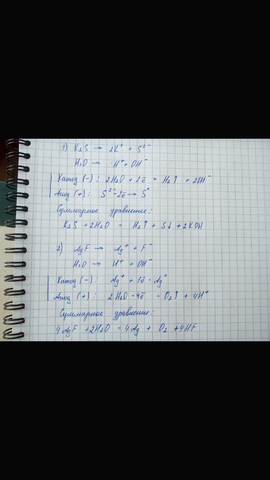 1) K₂S → 2K⁺ + S²⁻
H₂O → H⁺ + OH⁻
Катод (-): 2H₂O + 2ē = H₂↑ + 2OH⁻
Анод (+): S²⁻ - 2ē → S⁰
Суммарное уравнение:
K₂S + 2H₂O = H₂↑ + S↓ + 2KOH
2) AgF → Ag⁺ + F⁻
H₂O → H⁺ + OH⁻
Катод (-): Ag⁺ + 1ē = Ag⁰
Анод (+): 2H₂O - 4ē = O₂↑ + 4H⁺
Суммарное уравнение:
4AgF + 2H₂O = 4Ag + O₂ + 4HF